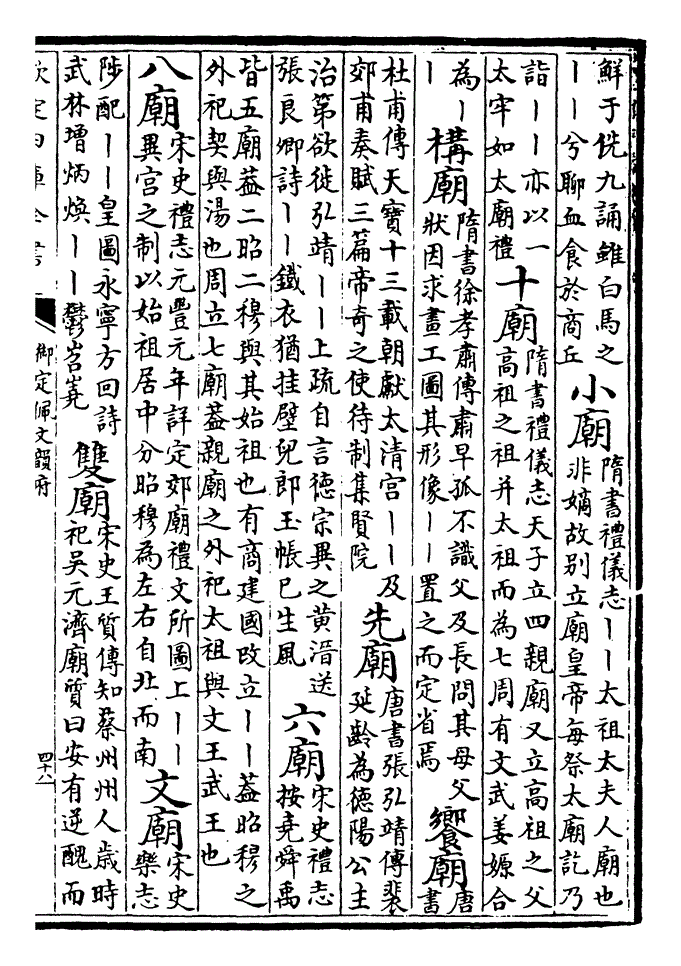 鮮于侁九誦雖白馬之
丨丨兮聊血食於商丘
小廟
隋書禮儀志丨丨太祖太夫人廟也
非嫡故別立廟皇帝每祭太廟訖乃
詣丨丨亦以一
太牢如太廟禮
十廟
隋書禮儀志天子立四親廟又立高祖之父
高祖之祖并太祖而為七周有文武姜嫄合
為丨
丨
構廟
隋書徐孝肅傳肅早孤不識父及長問其母父
狀因求畫工圖其形像丨丨置之而定省焉
饗廟
唐
書
杜甫傳天寶十三載朝獻太清宮丨丨及
郊甫奏賦三篇帝奇之使待制集賢院
先廟
唐書張弘靖傳裴
延齡為德陽公主
治第欲徙弘靖丨丨上疏自言德宗異之黃溍送
張良卿詩丨丨鐵衣猶挂壁兒郎玉帳已生風
六廟
宋史禮志
按堯舜禹
皆五廟葢二昭二穆與其始祖也有商建國改立丨丨葢昭穆之
外祀契與湯也周立七廟葢親廟之外祀太祖與文王武王也
八廟
宋史禮志元豐元年詳定郊廟禮文所圖上丨丨
異宮之制以始祖居中分昭穆為左右自北而南
文廟
宋史
樂志
陟配丨丨皇圖永寧方回詩
武林增炳煥丨丨鬱岧嶤
雙廟
宋史王質傳知蔡州州人歲時
祀吳元濟廟質曰安有逆醜而
欽定四庫全書
御定佩文韻府
四十八